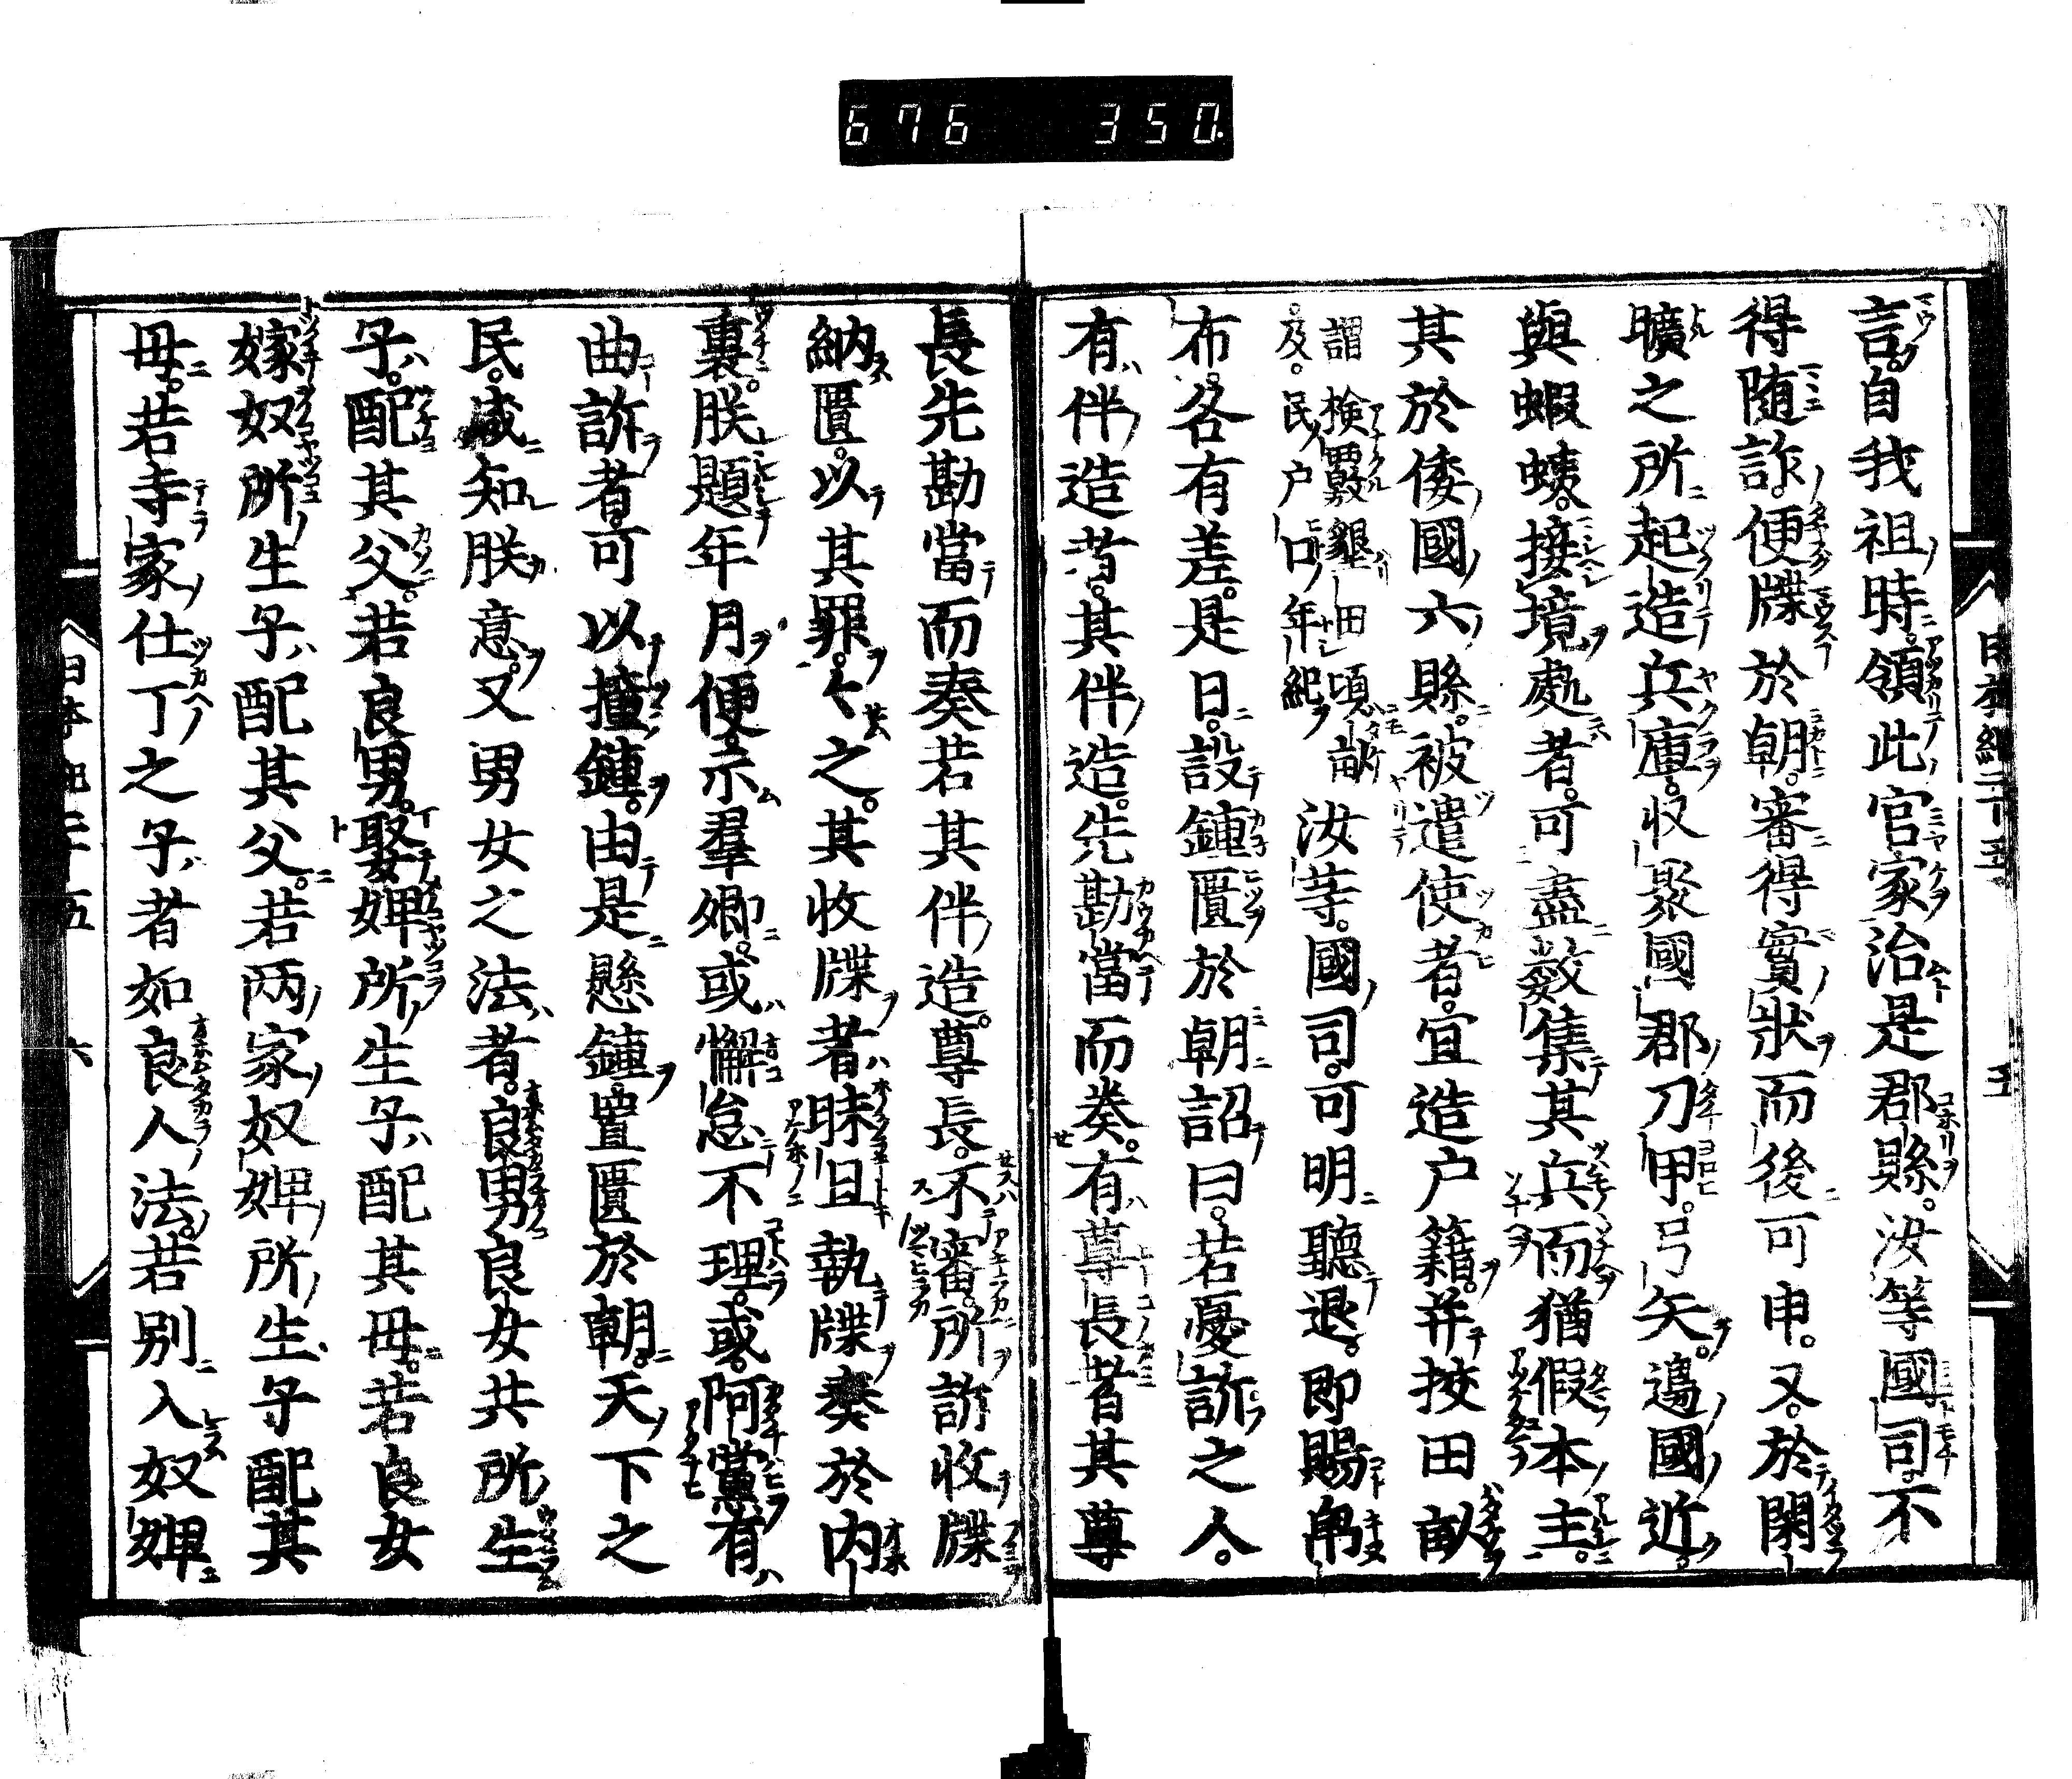 676 350.
日本紀二十五 五
言。自我祖時。領此官家治是郡縣。汝等國司。不
得随詐。便牒於朝。審得實狀而後可申。又。於閑
曠之所起造兵庫。収聚國郡刀甲。弓矢。邊國近。
與蝦蛦。接境處者。可盡數集其兵而猶假本主。
其於倭國六縣。被遣使者。宜造户籍。并挍田畝
謂檢覈墾田頃畝
及。民户口年紀
汝等。國司。可明聽退。即賜帛
布。各有差。是日。設鍾匱於朝詔曰。若憂訴之人。
有伴造者。其伴造。先勘當而奏。有尊長者其尊
長先勘當而奏若其伴造。尊長。不審。所訴收牒
納匱。以其罪。々之。其收牒者昧旦執牒奏於内
裏。朕題年月便示羣卿。或懈怠不理。或。阿黨有
曲訴者。可以撞鍾。由是懸鍾。置匱於朝。天下之
民。咸知朕意。又男女之法者。良男良女共所生
子。配其父。若良男。娶婢所生子配其母。若良女
嫁奴所生子配其父。若两家奴婢所生子配其
母。若寺家仕丁之子者如良人法。若别入奴婢
日本紀二十五 六